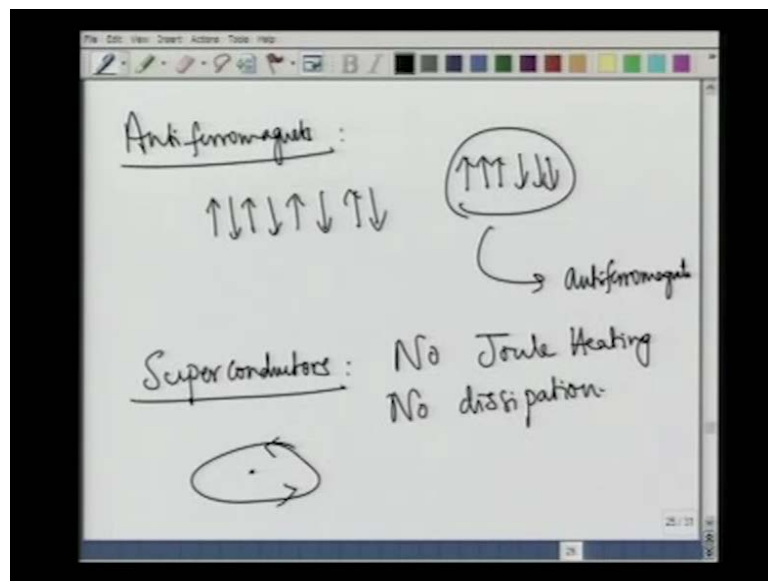 File Edit View Insert Actions Tools Help
B I
Antiferromagnets :
antiferromagnet
Superconductors : No Joule Heating
No dissipation.
25 / 31
26